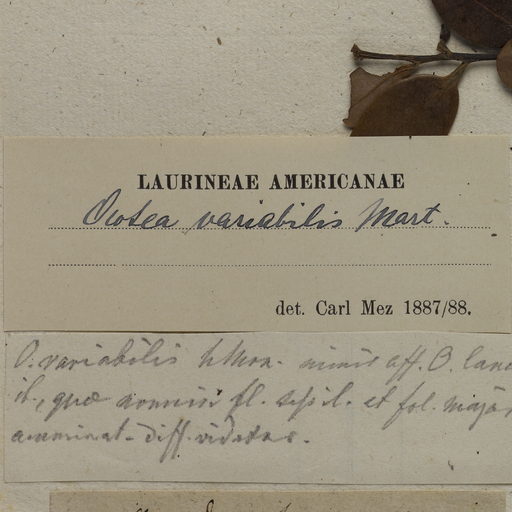 LAURINEAE AMERICANAE
Ocotea variabilis Mart.
det. Carl Mez 1887/88.
O. variabilis aff. O. lanc
it., quae fl. et fol. major
acuminat. diff. videtur.